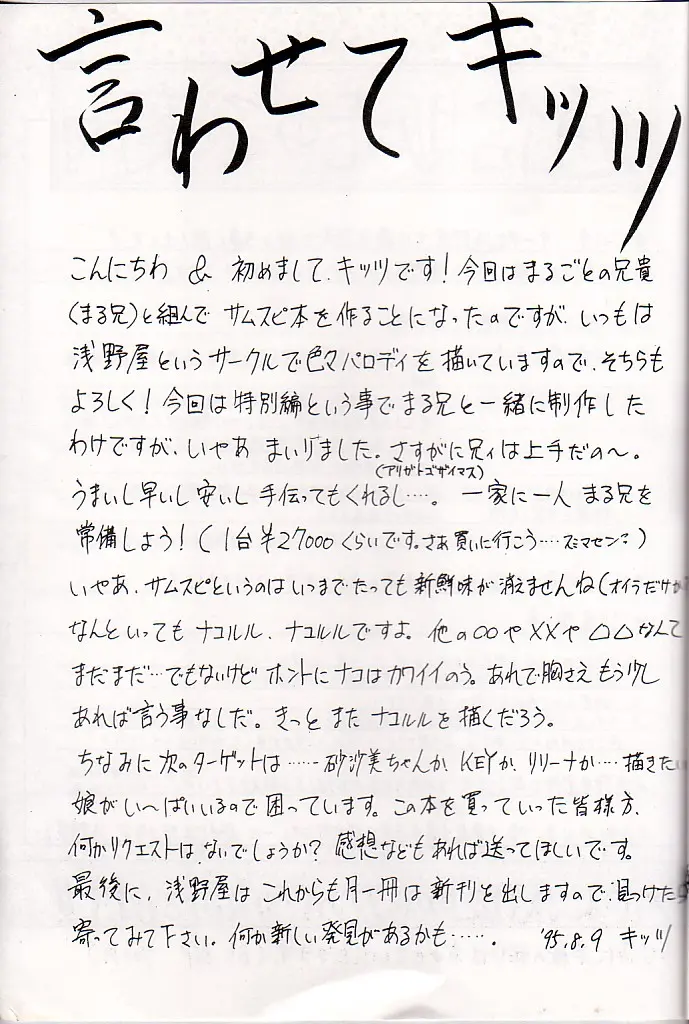 言わせてキッツ
こんにちわ & 初めまして、キッツです!今回はまるごとの兄貴
(まる兄)と組んで サムスピ本を作ることになったのですが、いつもは
浅野屋というサークルで色々パロディを描いていますので、そちらも
よろしく!今回は特別編という事でまる兄と一緒に制作した
わけですが、いやあ まいりました。さすがに兄ィは上手だの〜。
(アリガトゴザイマス)
うまいし早いし安いし 手伝ってもくれるし‥‥。 一家に一人 まる兄を
常備しよう!(1台半27000くらいです。さあ買いに行こう‥‥スミマセン?)
いやあ、サムスピというのはいつまでたっても新鮮味が消えませんね(オイラだけか
なんといっても ナコルル、ナコルルですよ。他の○○や××や△△なんて
まだまだ‥でもないけど ホントにナコはカワイイのう。あれで胸さえもう少し
あれば言う事なしだ。きっと また ナコルルを描くだろう。
ちなみに次のターゲットは‥‥‥砂沙美ちゃんか、KEYか、リリーナか‥‥描きたい
娘がい〜ぱいいるので困っています。この本を買っていった皆様方、
何かリクエストは、ないでしょうか?感想などもあれば送ってほしいです。
最後に、浅野屋はこれからも月一冊は新刊を出しますので、見つけたら
寄ってみて下さい。何か新しい発見があるかも‥‥‥. '95.8.9 キッツ